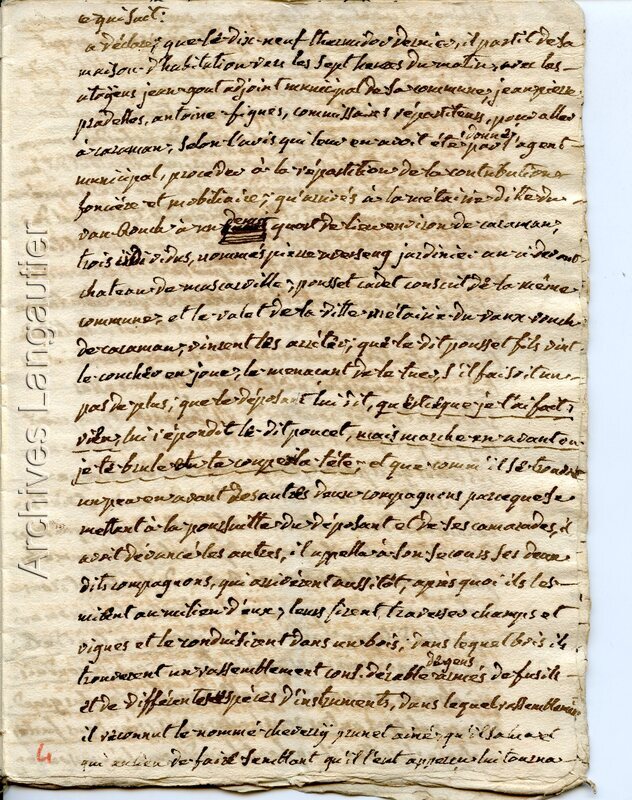 ce qui suit.
a déclaré, que le dix-neuf thermidor dernier, il partit de sa
maison d'habitution vers les sept heures du matin, avec les
citoyens jean gout adjoint municipal de sa commune, jean pierre
pradelles, antoine figues, commissaires répartiteurs, pour aller
à caraman, selon l'avis qui leur en avoit été donné par l'agent
municipal, proceder à la répartition de la contribution
foncière et mobiliaire; qu'arrivés à la metairie ditte du
van-Rouch à un demi quart de lieu environ de caraman,
trois individus, nommés pierre jardinier au ci devant
chateau de mascarville, pousset cadet conscrit de la même
commune, et le valet de la ditte métairie du vaux-rouch
de caraman, vinrent les arrêter; que le dit pousset fils vint
le coucher en joue, le menacant de le tuer, s'il faisoit un
pas de plus; que le déposant lui dit, qu'estceque je t'ai fait,
rien, lui répondit le dit poucet, mais marche en avant ou
je te brule ou te coupe la tête; et que comm'il se trouva
un peu en avant des autres deux compagnons parceque se
mettant à la poursuitte du déposant et de ses camarades, il
avoit devancé les autres, il appella à son secours ses deux
dits compagnons, qui arriverent aussitôt, après quoi ils les
mirent au milieu d'eux, leurs firent traverser champs et
vignes et le conduisirent dans un bois, dans lequel bois ils
trouverent un rassemblement considérable de gens armés de fusils
et de différentes espèces d'instruments, dans lequel rassemblement
il reconnut le nommé cheverry ainé, qu'il salua et
qui au lieu de faire semblant qu'il l'eut apperçu lui tourna
4
Archives Langautier